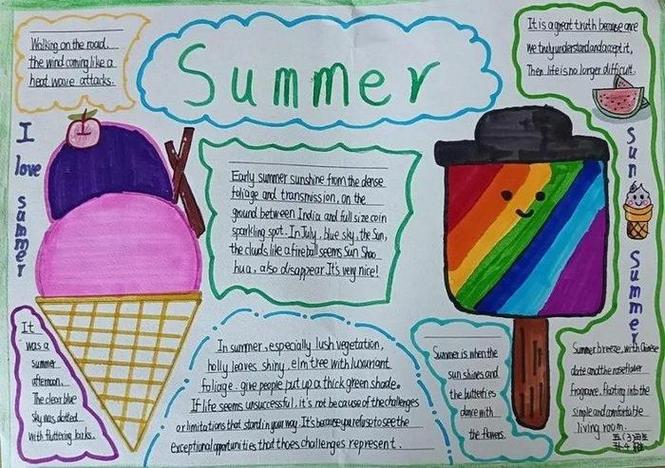 Summer
Walking on the road.
the wind coming like a
heat wave attacks.
It is a great truth because one
we truly understand and accept it,
Then life is no longer difficult.
I
love
summer
Early summer sunshine from the dense
foliage and transmission, on the
ground between India and full size coin
sparkling spot. In July, blue sky, the Sun,
the clouds like a fireball seems Sun Shao
hua, also disappear. It's very nice!
Sun
Summer
It
was a
summer
afternoon.
The clear blue
sky was dotted
with fluttering larks.
In summer, especially lush vegetation,
holly leaves shiny, elm tree with luxuriant
foliage. give people put up a thick green shade.
If life seems unsuccessful, it's not because of the challenges
or limitations that stand in your way. It's because you refuse to see the
exceptional opportunities that thoes challenges represent.
Summer is when the
sun shines and
the butterflies
dance with
the flowers.
Summer breeze, with
date and the roseflower
fragrance. floating into the
simple and comfortable
living room.